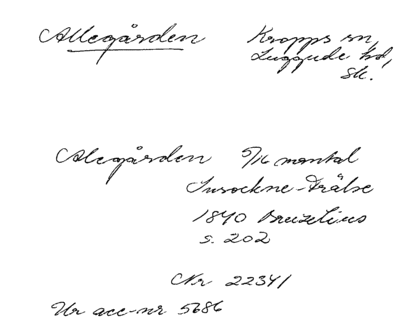 Allegården Kropps sn,
Luggude hd,
Sk.
Alegården 5/16 mantal
Insockne-Frälse
1840 Bruzelius
s. 202
Nr 22341
Ur acc-nr 5686